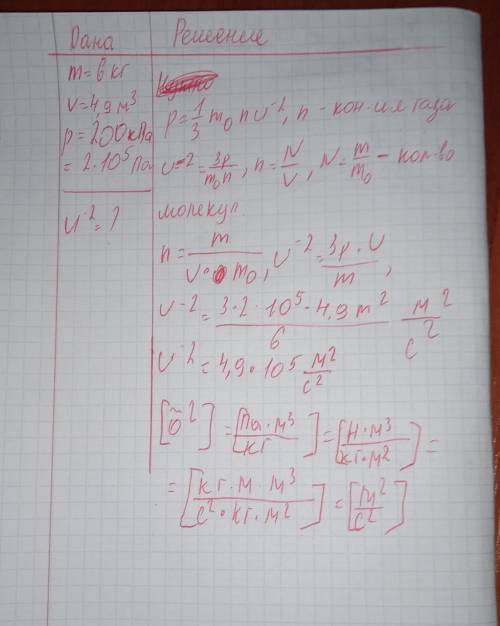 Дана Решение
m = 6 кг
V = 4,9 м³
p = 200 кПа
= 2·10⁵ Па
υ⁻² = ?
p = 1/3 m₀ n υ⁻², n - кон-ия газа
υ⁻² = 3p/m₀n, n = N/V, N = m/m₀ - кол-во
молекул
n = m/V·m₀, υ⁻² = 3p·V/m,
υ⁻² = 3·2·10⁵·4,9 m²/6 м²/с²
υ⁻² = 4,9·10⁵ м²/с²
[υ̃²] = [Па·м³/кг] = [Н·м³/кг·м²] =
= [кг·м·м³/с²·кг·м²] = [м²/с²]